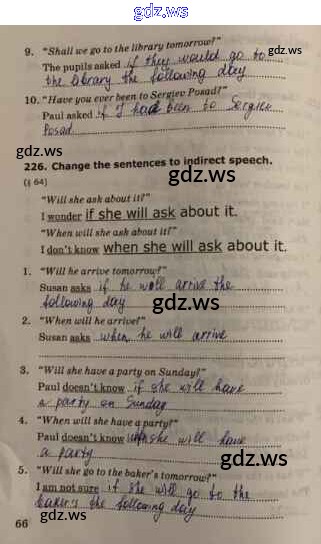 gdz.ws
9. "Shall we go to the library tomorrow?"
The pupils asked if they would go to
the library the following day
10. "Have you ever been to Sergiev Posad?"
Paul asked if I had been to Sergiev
Posad
226. Change the sentences to indirect speech.
(§ 64)
gdz.ws
"Will she ask about it?"
I wonder if she will ask about it.
"When will she ask about it?"
I don't know when she will ask about it.
1. "Will he arrive tomorrow?"
Susan asks if he will arrive the
following day
gdz.ws
2. "When will he arrive?"
Susan asks when he will arrive
3. "Will she have a party on Sunday?"
Paul doesn't know if she will have
a party on Sunday
gdz.ws
4. "When will she have a party?"
Paul doesn't know when she will have
a party
gdz.ws
5. "Will she go to the baker's tomorrow?"
I am not sure if she will go to the
baker's the following day
66
gdz.ws